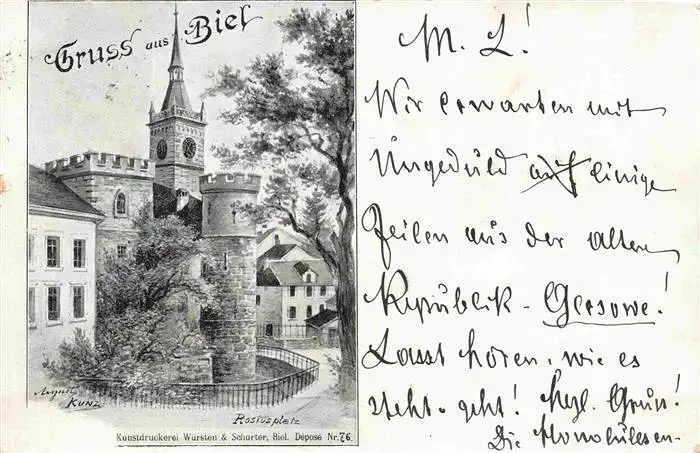 Gruss aus Biel
August
KUNZ
Rosiusplatz
Kunstdruckerei Würsten & Schurter, Biel. Déposé Nr. 76.
M. L!
Wir erwarten mit
Ungeduld auf einige
Zeilen aus der alten
Republik - Gersowe!
Lasst hören, wie es
steht u. geht! Herzl. Gruss!
Die